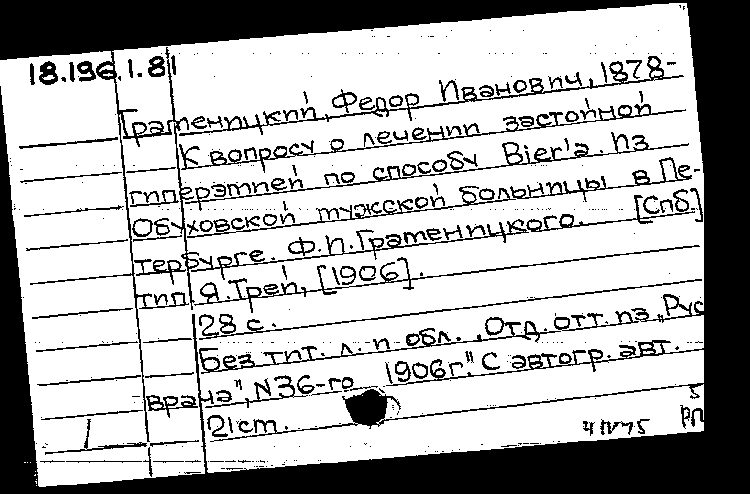 18.196.1.81
Граменицкий, Федор Иванович, 1878-
К вопросу о лечении застойной
гиперэмией по способу Bier'a. Из
Обуховской мужской больницы в Пе-
тербурге. Ф.И.Граменицкого. [Спб.]
тип. Я.Трей, [1906].
28 с.
Без тит. л. и обл. „Отд. отт. из „Рус
врача", N36-го 1906г." С автогр. авт.
21cm.
4 IV 75
РП